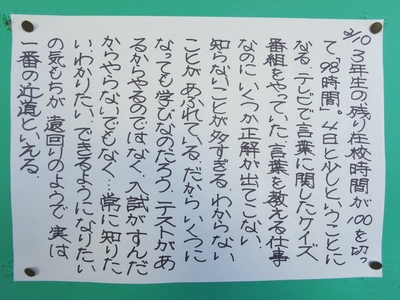 2/10 3年生の残り在校時間が100を切っ
て、"98時間"。4日と少しということに
なる。テレビで言葉に関したクイズ
番組をやっていた。言葉を教える仕事
なのに、いくつか正解が出てこない。
知らないことが多すぎる。わからない
ことがあふれている。だから、いくつに
なっても学びなのだろう。テストがあ
るからやるのではなく、入試がすんだ
からやらないでもなく…常に知りた
い、わかりたい、できるようになりたい
の気もちが、遠回りのようで、実は
一番の近道といえる。